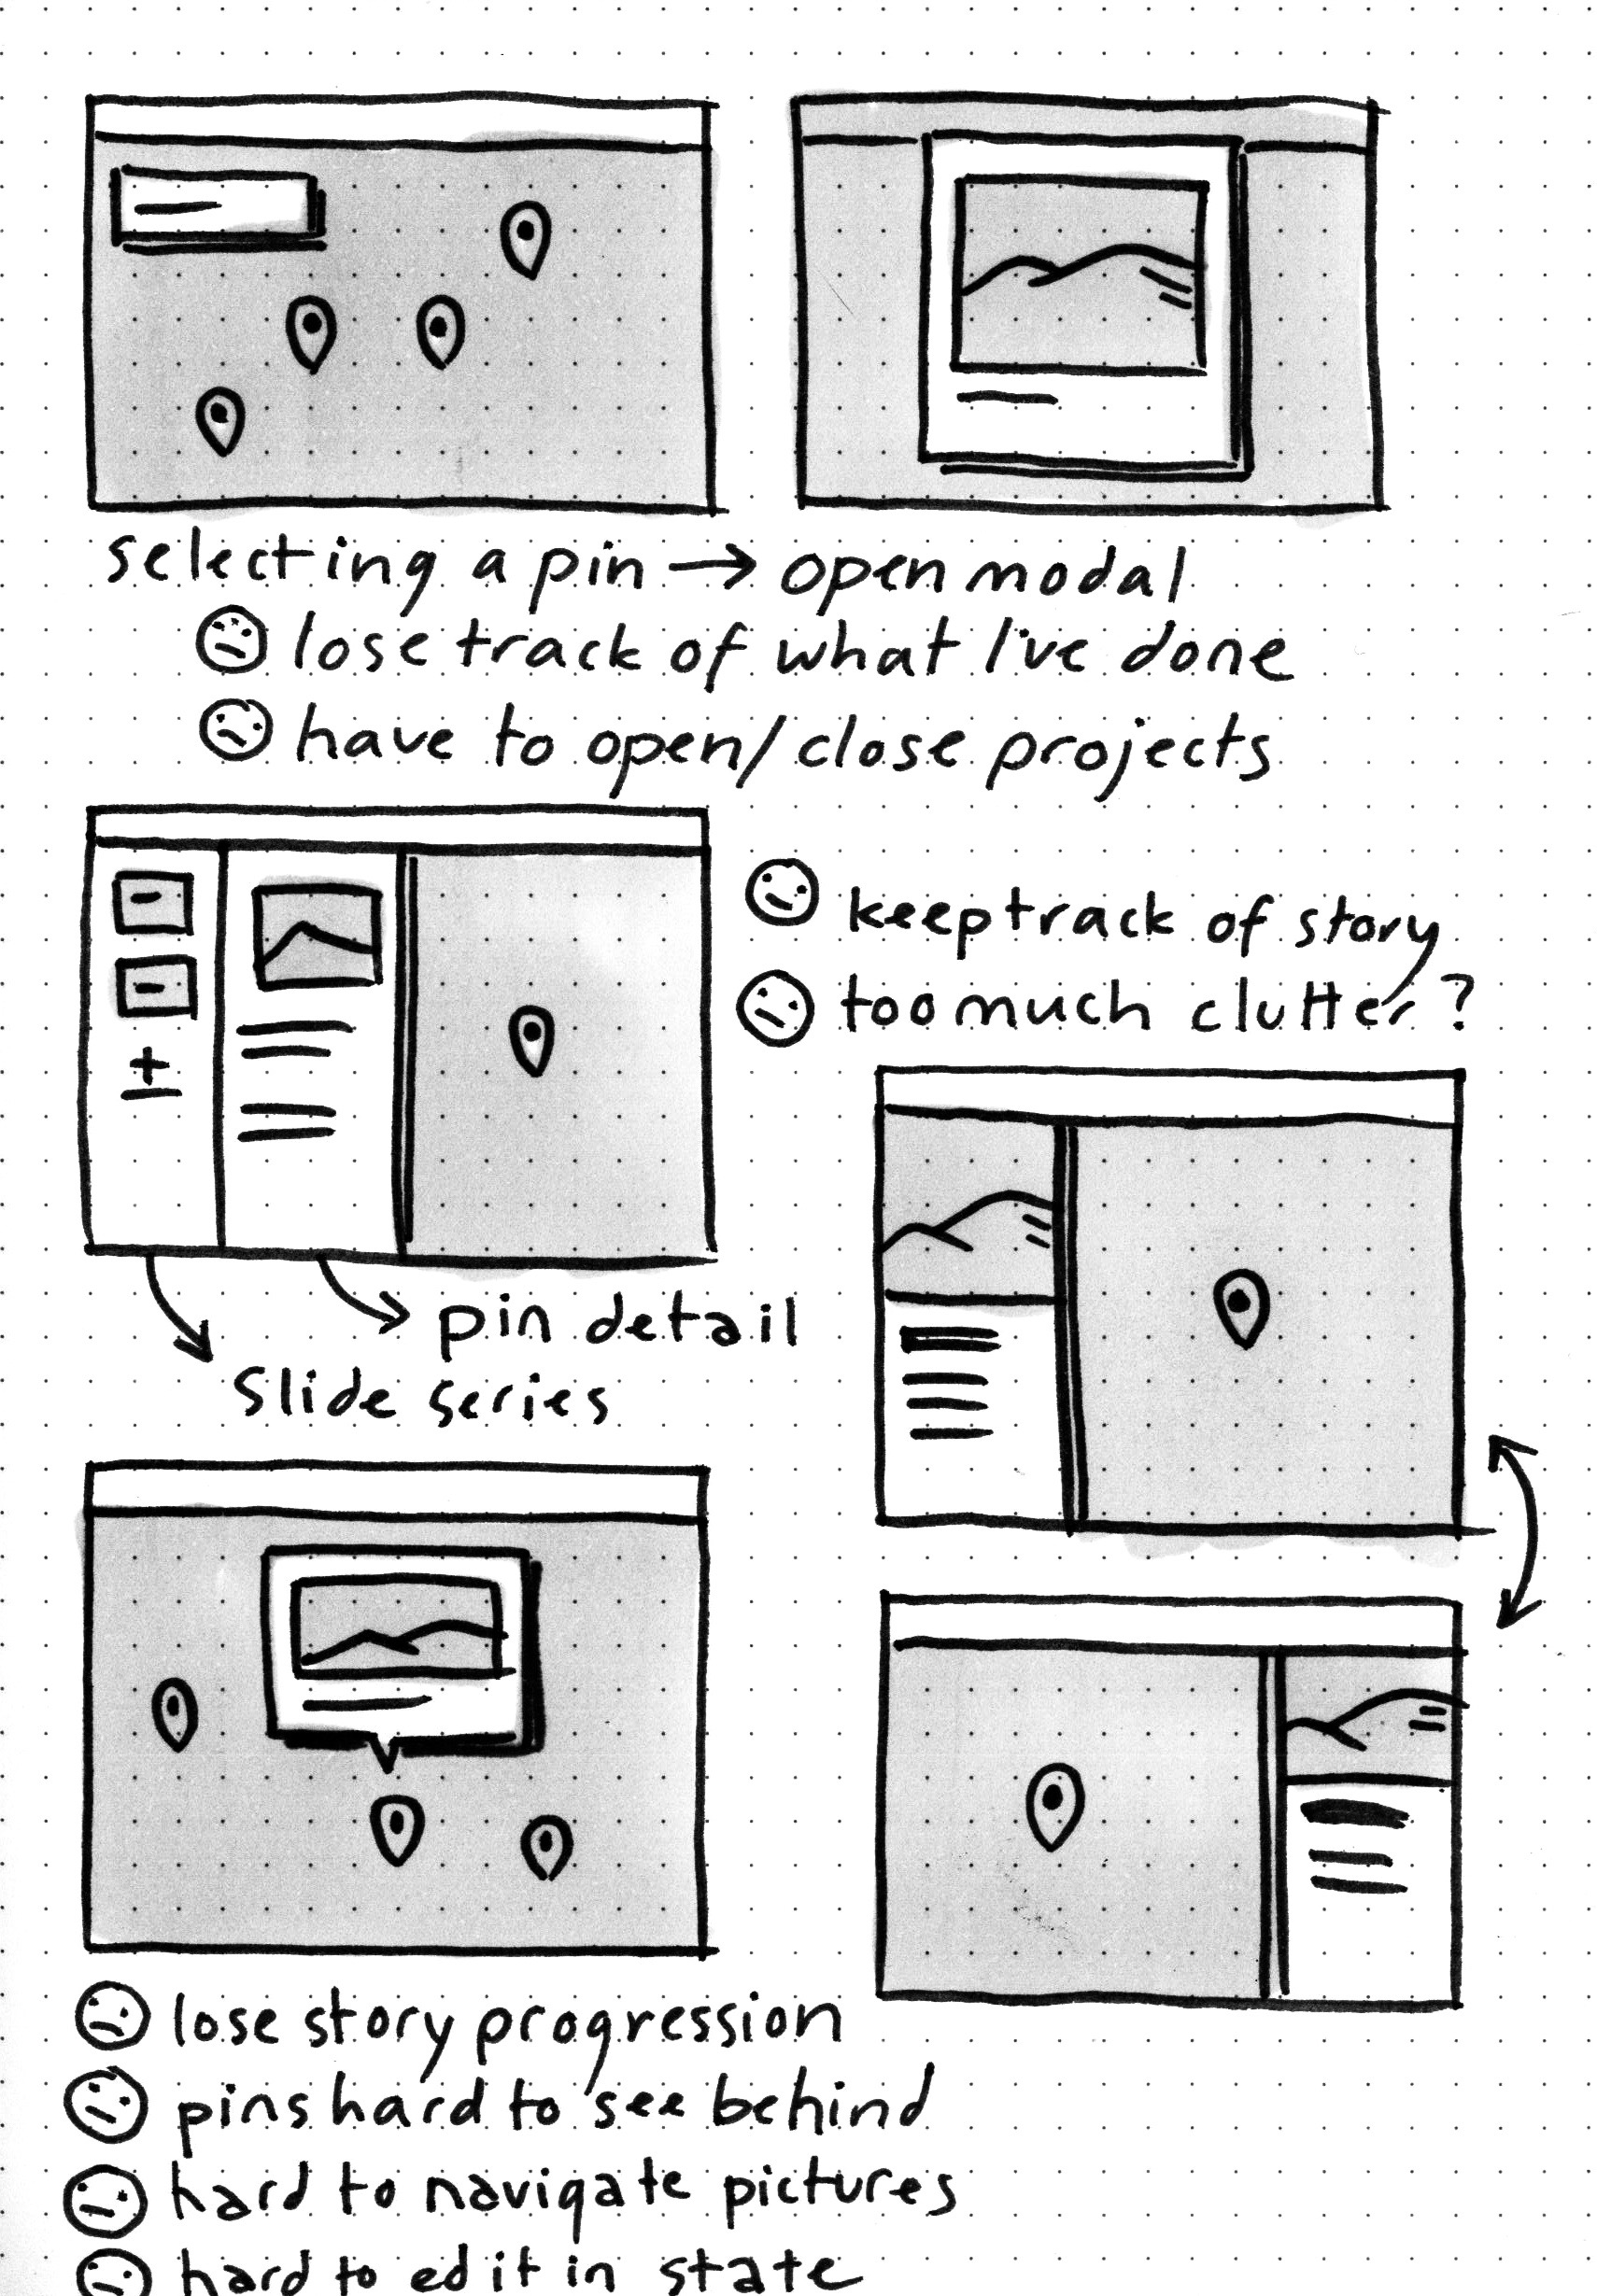 selecting a pin → open modal
lose track of what I've done
have to open/close projects
keep track of story
too much clutter?
pin detail
Slide series
lose story progression
pins hard to see behind
hard to navigate pictures
hard to edit in state